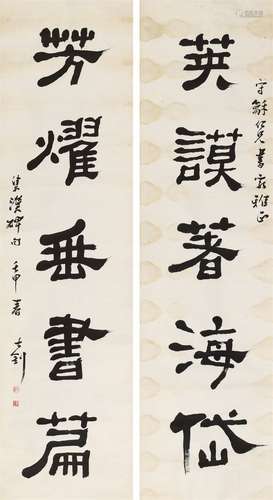 英謨著海岱
守龢仁兄書家雅正
芳燿垂書篇
集漢碑
壬申春